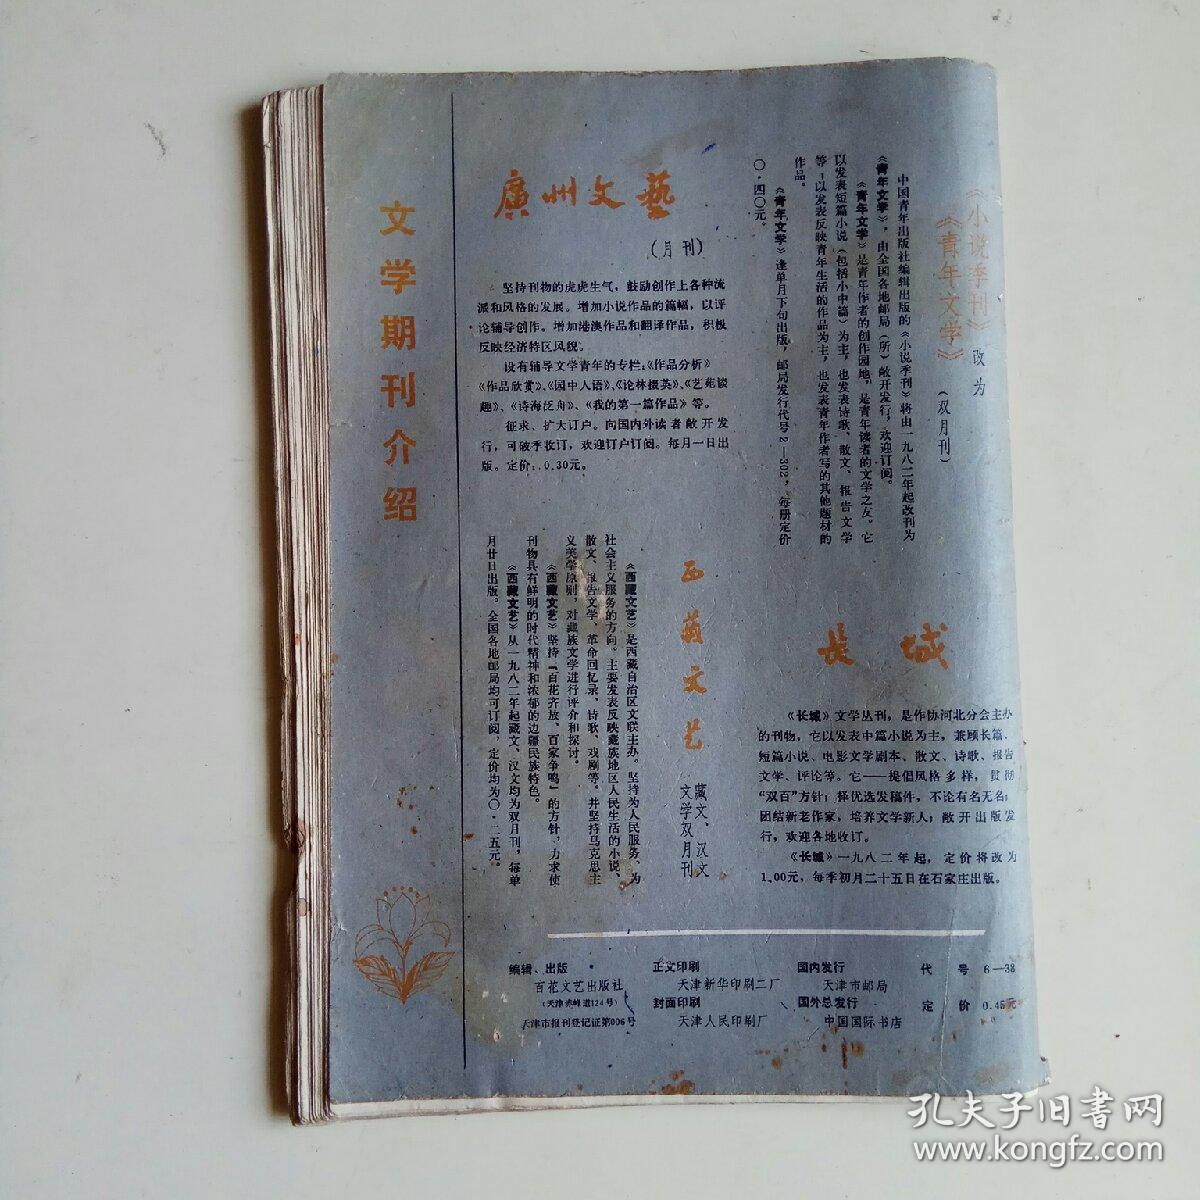 文学期刊介绍
廣州文藝
（月刊）
坚持刊物的虎虎生气，鼓励创作上各种流
派和风格的发展。增加小说作品的篇幅，以评
论辅导创作。增加港澳作品和翻译作品，积极
反映经济特区风貌。
设有辅导文学青年的专栏：《作品分析》
《作品欣赏》、《园中人语》、《论林掇英》、《艺苑谈
趣》、《诗海泛舟》、《我的第一篇作品》等。
征求、扩大订户。向国内外读者敞开发
行，可破季收订，欢迎订户订阅。每月一日出
版。定价：0.30元。
《小说季刊》改为
《青年文学》（双月刊）
中国青年出版社编辑出版的《小说季刊》将由一九八二年起改刊为
《青年文学》，由全国各地邮局（所）敞开发行，欢迎订阅。
《青年文学》是青年作者的创作园地，是青年读者的文学之友。它
以发表短篇小说（包括小中篇）为主，也发表诗歌、散文、报告文学
等；以发表反映青年生活的作品为主，也发表青年作者写的其他题材的
作品。
《青年文学》逢单月下旬出版，邮局发行代号2—302，每册定价
〇·四〇元。
西藏文艺
藏文、汉文
文学双月刊
《西藏文艺》是西藏自治区文联主办。坚持为人民服务、为
社会主义服务的方向。主要发表反映藏族地区人民生活的小说、
散文、报告文学、革命回忆录、诗歌、戏剧等。并坚持马克思主
义美学原则，对藏族文学进行评介和探讨。
《西藏文艺》坚持“百花齐放、百家争鸣”的方针，力求使
刊物具有鲜明的时代精神和浓郁的边疆民族特色。
《西藏文艺》从一九八二年起藏文、汉文均为双月刊，每单
月廿日出版。全国各地邮局均可订阅，定价均为〇·二五元。
长城
《长城》文学丛刊，是作协河北分会主办
的刊物，它以发表中篇小说为主，兼顾长篇、
短篇小说、电影文学剧本、散文、诗歌、报告
文学、评论等。它——提倡风格多样，贯彻
“双百”方针；择优选发稿件，不论有名无名；
团结新老作家，培养文学新人；敞开出版发
行，欢迎各地收订。
《长城》一九八二年起，定价将改为
1.00元，每季初月二十五日在石家庄出版。
编辑、出版
百花文艺出版社
（天津赤峰道124号）
天津市报刊登记证第006号
正文印刷
天津新华印刷二厂
封面印刷
天津人民印刷厂
国内发行
天津市邮局
国外总发行
中国国际书店
代号 6—38
定价 0.45元
孔夫子旧书网
www.kongfz.com